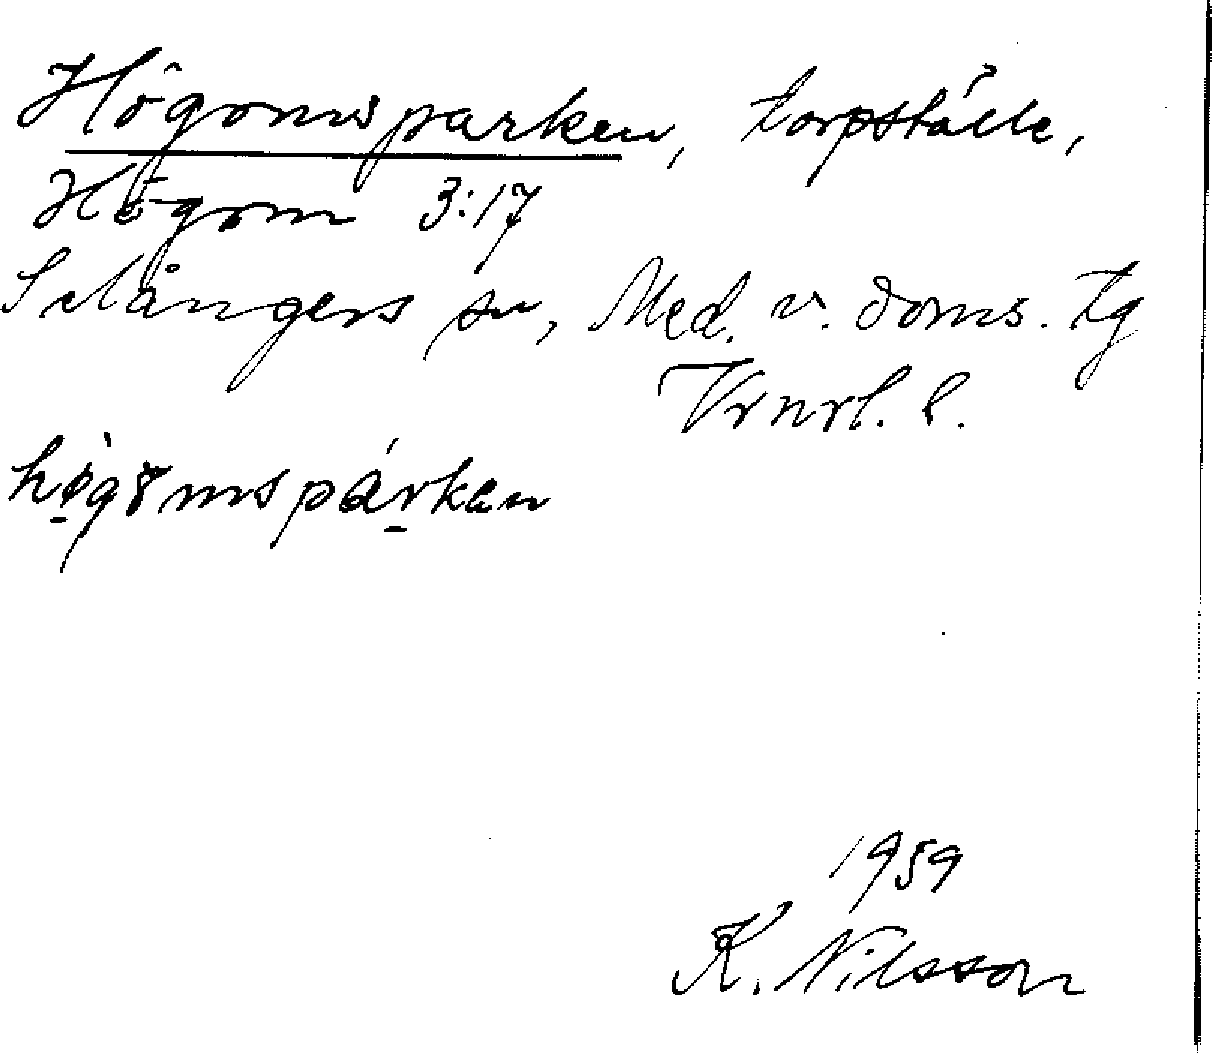 Högomsparken, torpställe,
Högom 3:17
Selångers sn, Med. v. doms. tg
Vrnrl. l.
hø̱gömspàṟken
1959
K. Nilsson